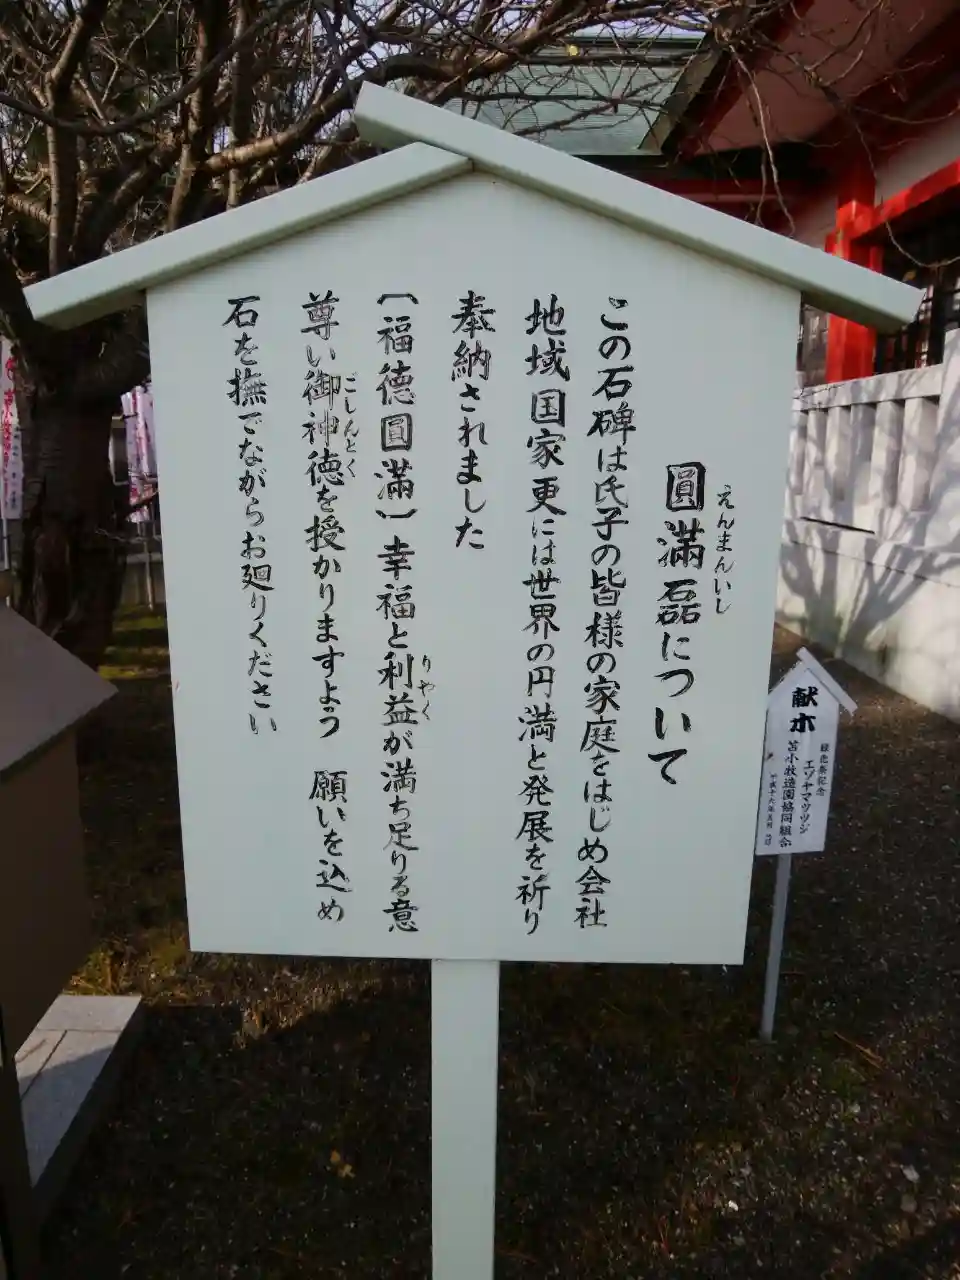 圓満磊について
えんまんいし
この石碑は氏子の皆様の家庭をはじめ会社
地域国家更には世界の円満と発展を祈り
奉納されました
〔福徳圓満〕幸福と利益が満ち足りる意
りやく
尊い御神徳を授かりますよう 願いを込め
ごしんとく
石を撫でながらお廻りください
献木
緑化祭記念
エゾヤマツツジ
苫小牧造園協同組合